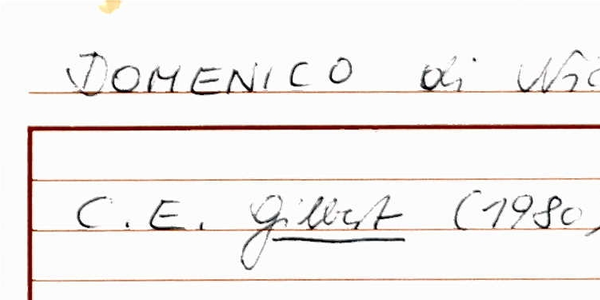 DOMENICO di
C. E. Gilbert (1980,